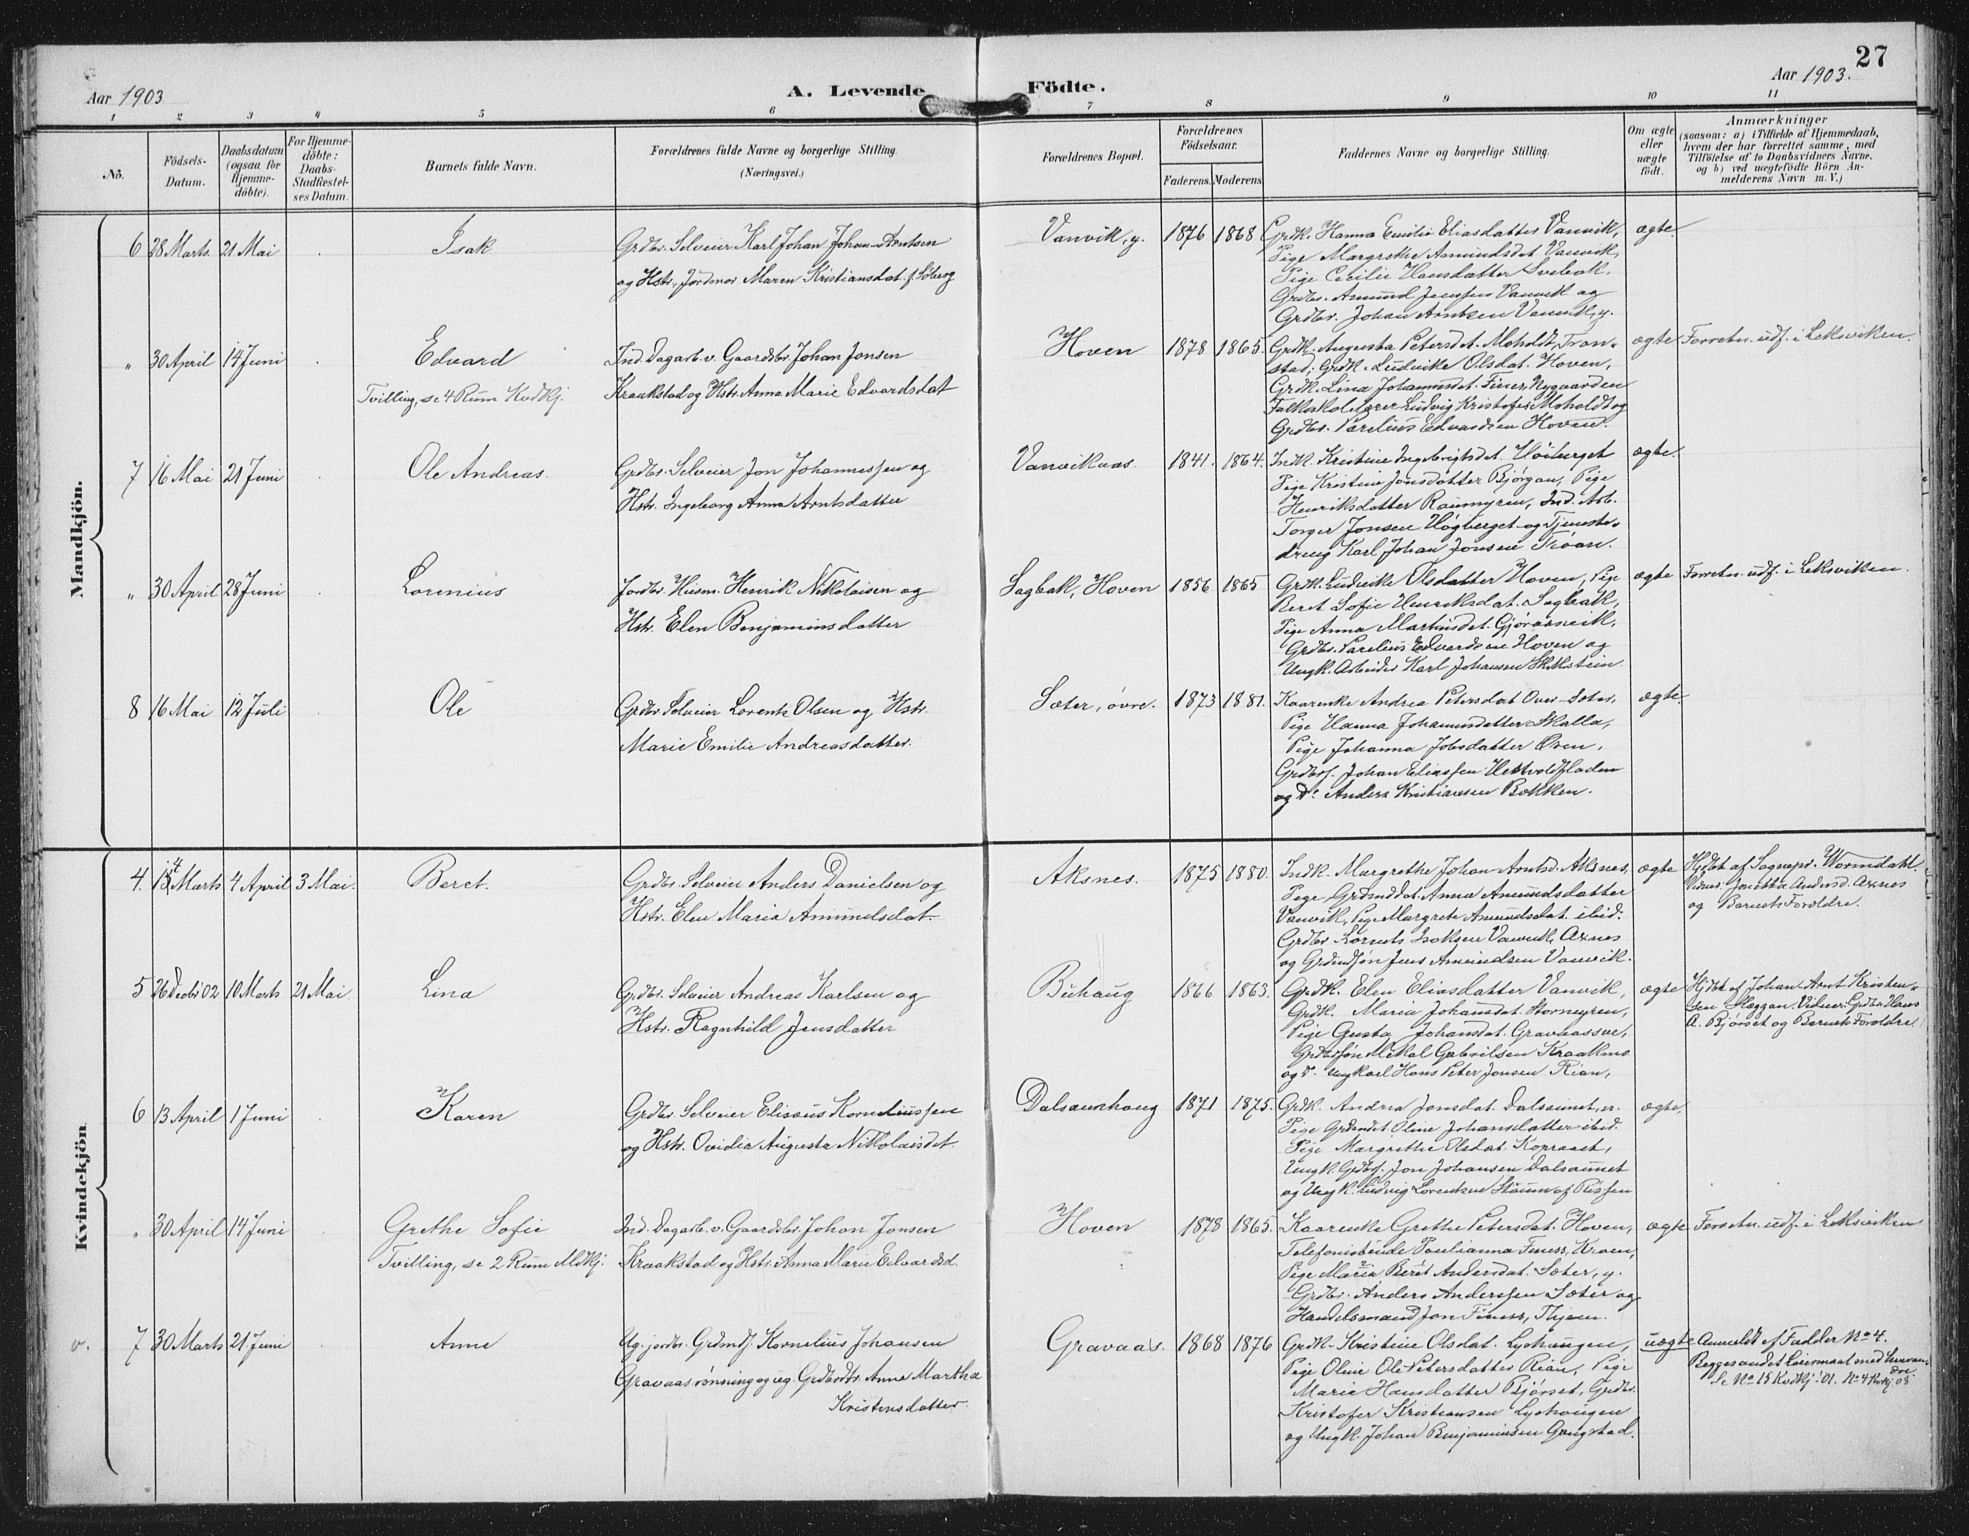 27
Aar 1903
A. Levende
Födte.
Aar 1903.
1 2 3 4 5 6 7 8 9 10 11
No.
Födsels-
Datum.
Daabsdatum
(ogsaa for
Hjemme-
döbte).
For Hjemme-
döbte:
Daabs-
Stadfæstel-
ses Datum.
Barnets fulde Navn.
Forældrenes fulde Navne og borgerlige Stilling.
(Næringsvei.)
Forældrenes Bopæl.
Forældrenes
Födselsaar.
Faderens. Moderens.
Faddernes Navne og borgerlige Stilling.
Om ægte
eller
uægte
födt.
Anmærkninger
(saasom: a) i Tilfælde af Hjemmedaab,
hvem der har forrettet samme, med
Tilföielse af to Daabsvidners Navne.
og b) ved uægtefödte Börn An-
melderens Navn m. V.)
Mandkjön.
6 28 Marts. 21 Mai
Isak
Grdbr. Selveier Karl Johan Johan-Arntsen
og Hstr. Jordmor Maren Kristiansdat. f. Söberg
Vanvik, y. 1876 1868
Grdk. Hanna Emilie Eliasdatter Vanvik,
Pige Margrethe Amundsdat. Vanvik,
Pige Cecilie Hansdatter Svebak.
Grdbr. Amund Jensen Vanvik og
Grdbr. Johan Arntsen Vanvik, y.
ægte.
" 30 April 14 Juni
Edvard
Tvilling, se 4 Rum Kvdkj.
Ind. Dagarb. v. Gaardsbr. Johan Jonsen
Kraakstad og Hstr. Anna Marie Edvardsdat
Hoven 1878 1865.
Grdk. Augusta Petersdat. Moholdt, Tron-
stad; Grdk. Ludvike Olsdat. Hoven,
Grdk. Lina Johannesdat. Finess, Nygaarden
Folkeskolelærer Ludvig Kristofer Moholdt og
Grdbr. Parelius Edvardsen Hoven.
ægte Forretn. udf. i Leksviken.
7 16 Mai 21 Juni
Ole Andreas.
Grdbr. Selveier Jon Johannessen og
Hstr. Ingeborg Anna Arntsdatter
Vanvikaas. 1841. 1864.
Indk. Kristine Ingebrigtsdt. Höiberget
Pige Kristine Jonsdatter Bjørgan, Pige
Henriksdatter Raumyren, Ind. Arb.
Torger Jonsen Högberget og Tjeneste-
dreng Karl Johan Jonsen Tröan.
ægte.
" 30 April 28 Juni
Lorenius
Jordbr. Husm. Henrik Nikolaisen og
Hstr. Elen Benjaminsdatter
Sagbak, Hoven 1856 1865
Grdk. Ludvike Olsdatter Hoven, Pige
Beret Sofie Henriksdat. Sagbak,
Pige Anna Martinsdt. Gjöraasvik,
Grdbr. Parelius Edvardsen Hoven og
Ungk. Arbeider Karl Johansen Skilstein
ægte Forretn. udf. i Leksviken.
8 16 Mai 12 Juli
Ole
Grdbr Selveier Lorents Olsen og Hstr.
Marie Emilie Andreasdatter.
Sæter, øvre. 1873 1881.
Kaarenke Andrea Petersdat. Over-Seter,
Pige Hanna Johannesdatter Skalla,
Pige Johanna Jobsdatter Øren,
Grdbrs. Johan Eliassen Hestvoldfladen
og do Anders Kristiansen Bakken.
ægte.
Kvindekjön
4. 14 Marts 4 April 3 Mai.
Beret.
Grdbr. Selveier Anders Danielsen og
Hstr. Elen Maria Amundsdat.
Aksnes. 1875 1880.
Indk. Margrethe Johan-Arntsd. Aksnes,
Pige Grdmddat. Anna Amundsdatter
Vanvik, Pige Margrete Amundsdat. ibid.
Grdbr. Lornts Isaksen Vanvik, Axnes
og Grdmdsøn Jens Amundsen Vanvik.
ægte Hjdbt af Sognepr. Wormdahl.
Vidner: Jonetta Andersd. Axnes
og Barnets Foreldre.
5 26 Decbr 02 10 Marts 21 Mai
Lina
Grdbr. Selveier Andreas Karlsen og
Hstr. Ragnhild Jensdatter
Buhaug 1866 1863.
Grdk. Elen Eliasdatter Vanvik,
Grdk. Maria Johansdat. Stormyren,
Pige Gusta Johansdat. Gravaassve,
Grdbrsøn Mikal Gabrielsen Kraakmo
og ungkarl Hans Peter Jonsen Rian,
ægte Hjdbt af Johan-Arnt Kristen-
sen Hæggan. Vidner: Grdbr Hans
A. Bjørset og Barnets Foreldre
6 13 April 1 Juni
Karen
Grdbr. Selveier Elisæus Korneliussen
og Hstr. Ovidia Augusta Nikolaisdt.
Dalsaunhaug 1871 1875.
Grdk. Andrea Jonsdat. Dalsaunet, n.
Pige Grdmdt. Oline Johansdatter ibid.
Pige Margrethe Olsdat. Kopraaet,
Ungk. Grdbrs. Jon Johansen Dalsaunet
og Ungk. Ludvig Lorentsen Staum af Rissen
ægte.
" 30 April 14 Juni
Grethe Sofie
Tvilling, se 2 Rum Mdkj.
Ind. Dagarb. v. Gaardsbr. Johan Jonsen
Kraakstad og Hstr. Anna Marie Edvardsd.
Hoven 1878 1865.
Kaarenke Grethe Petersdat. Hoven,
Telefonistinde Paulianna Finess, Kroen,
Pige Maria Berët Andersdat. Sæter, y.
Grdbr. Anders Anderssen Sæter og
Handelsmand Jon Finess, Thjeen.
ægte Forretn. udf. i Leksviken
v. 7 30 Marts 21 Juni
Anne
Ug. jordbr. Grdmdf. Kornelius Johansen
Gravaasrønning og ug. Grdbrdtr. Anne Martha
Kristensdatter.
Gravaas. 1868 1876
Grdk. Kristine Olsdat. Lyshaugen,
Pige Oline Ole-Petersdatter Rian, Pige
Maria Hansdatter Bjørset, Grdbr.
Kristofer Kristiansen Lyshaugen
og Ungk. Johan Benjaminsen Gangstad.
uægte Anmeldt af Fadder No 4.
Begges andet Leiermaal med hveran-
dre
Se No 15 Kvdkj. 01. No 4 Kvkj 05